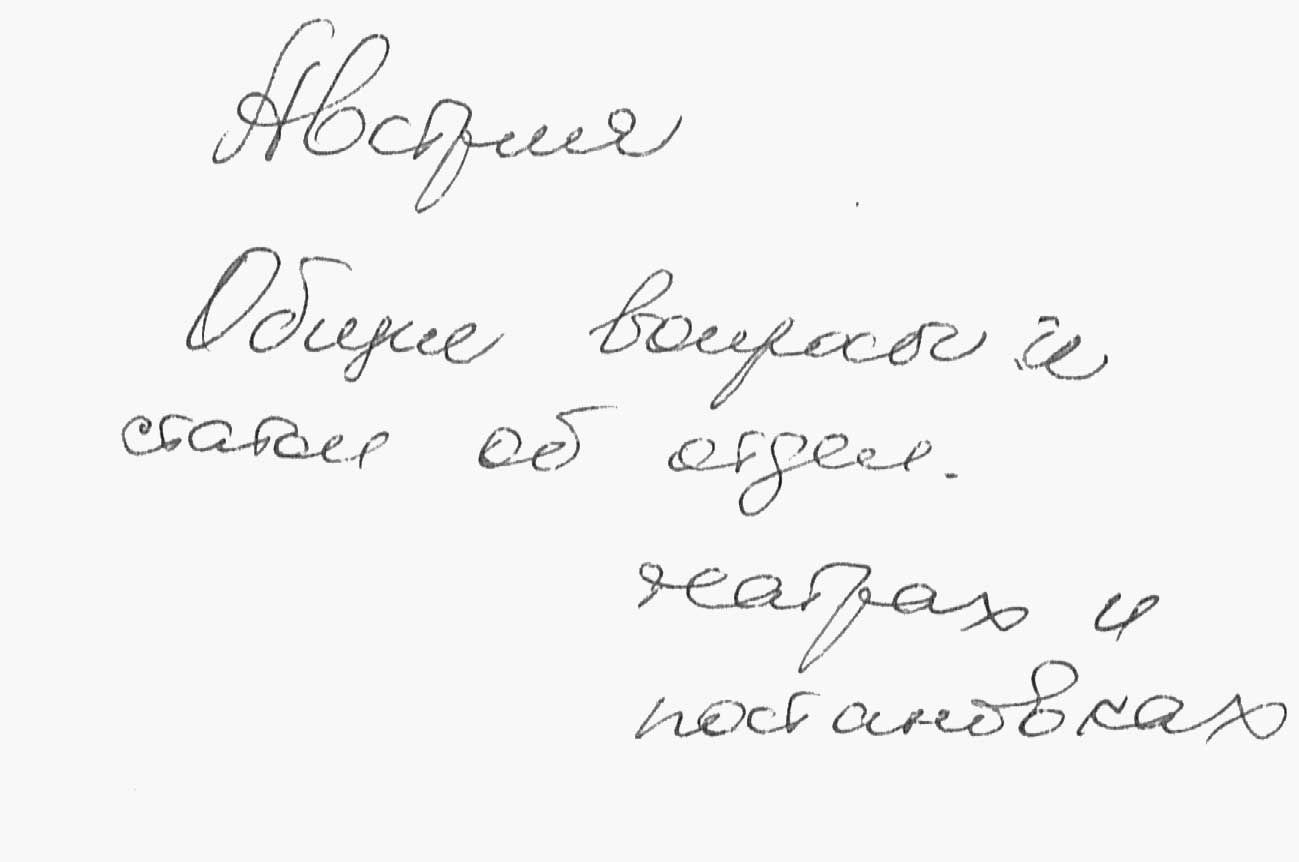 Австрия
Общие вопросы и
статьи об отдел.
театрах и
постановках